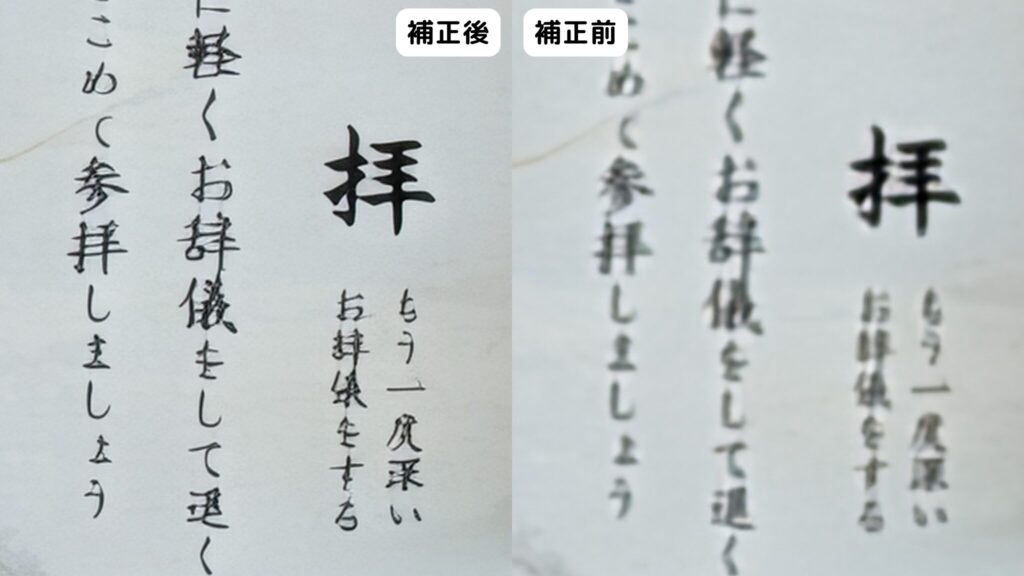 補正後
拝
もう一度深い
お辞儀をする
に軽くお辞儀をして退く
こめて参拝しましょう
補正前
拝
もう一度深い
お辞儀をする
に軽くお辞儀をして退く
こめて参拝しましょう